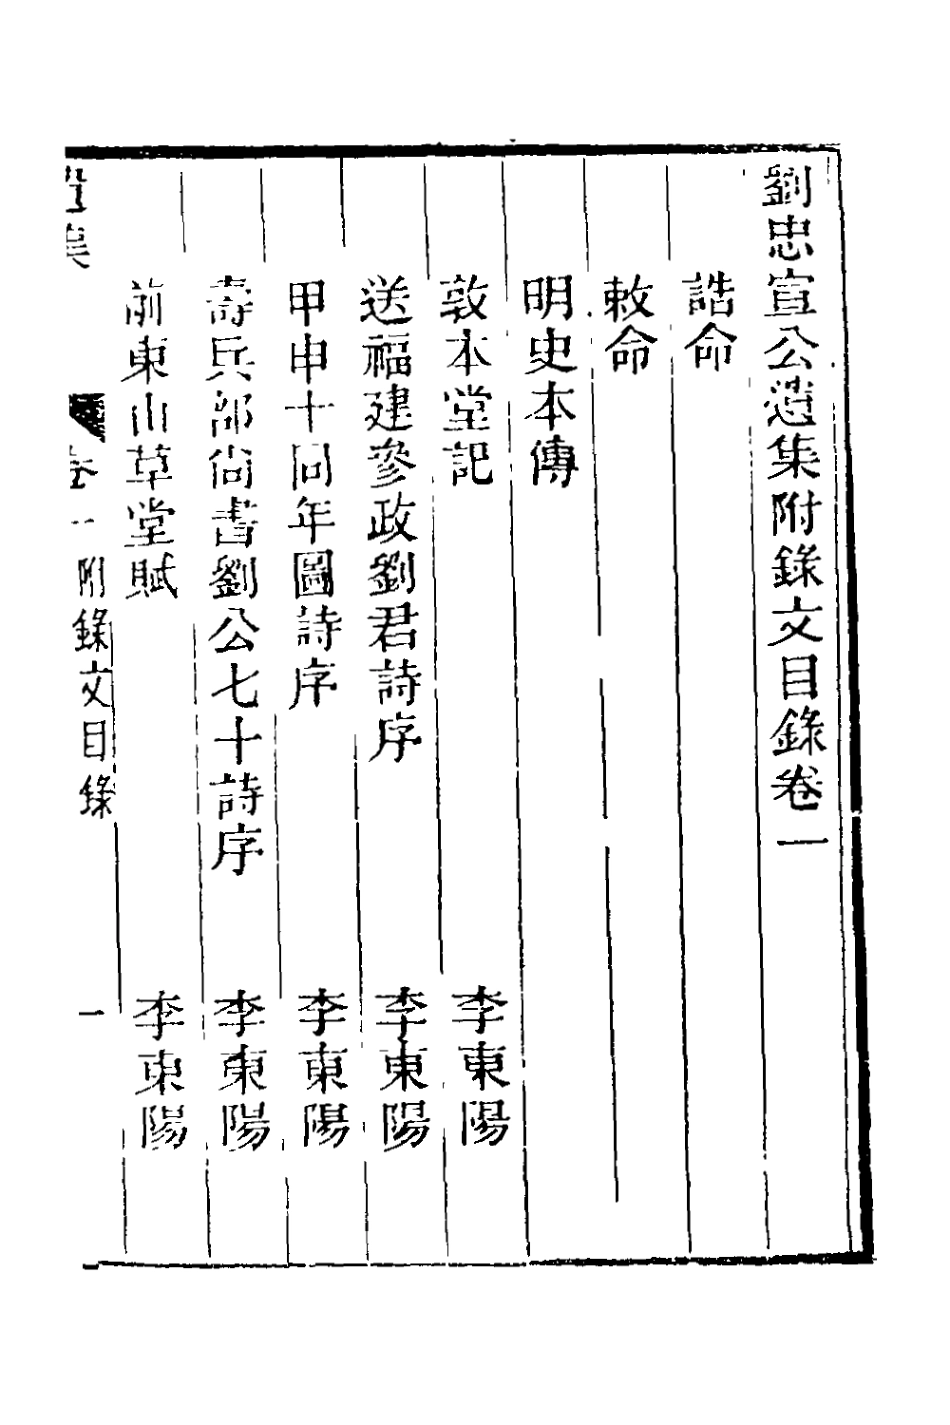 劉忠宣公遺集附錄文目錄卷一
誥命
敕命
明史本傳
敦本堂記 李東陽
送福建參政劉君詩序 李東陽
甲申十同年圖詩序 李東陽
壽兵部尚書劉公七十詩序 李東陽
前東山草堂賦 李東陽
遺集 卷一 附錄文目錄 一